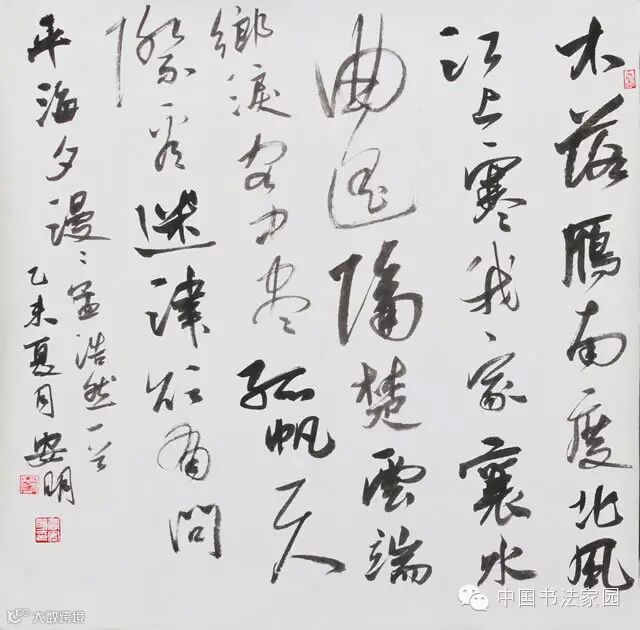 木落鴈南度北風
江上寒我家襄水
曲遥隔楚雲端
鄉淚客中盡孤帆天
際看迷津欲有問
平海夕漫〻孟浩然一首
乙未夏月安明
中国书法家园
大数跨境